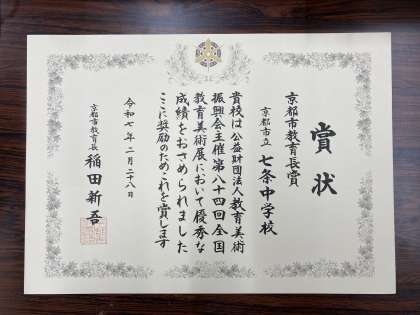 賞状
京都市教育長賞
京都市立 七条中学校
貴校は公益財団法人教育美術
振興会主催第八十四回全国
教育美術展において優秀な
成績をおさめられました
ここに奨励のためこれを賞します
令和七年二月二十八日
京都市教育長 稲田新吾